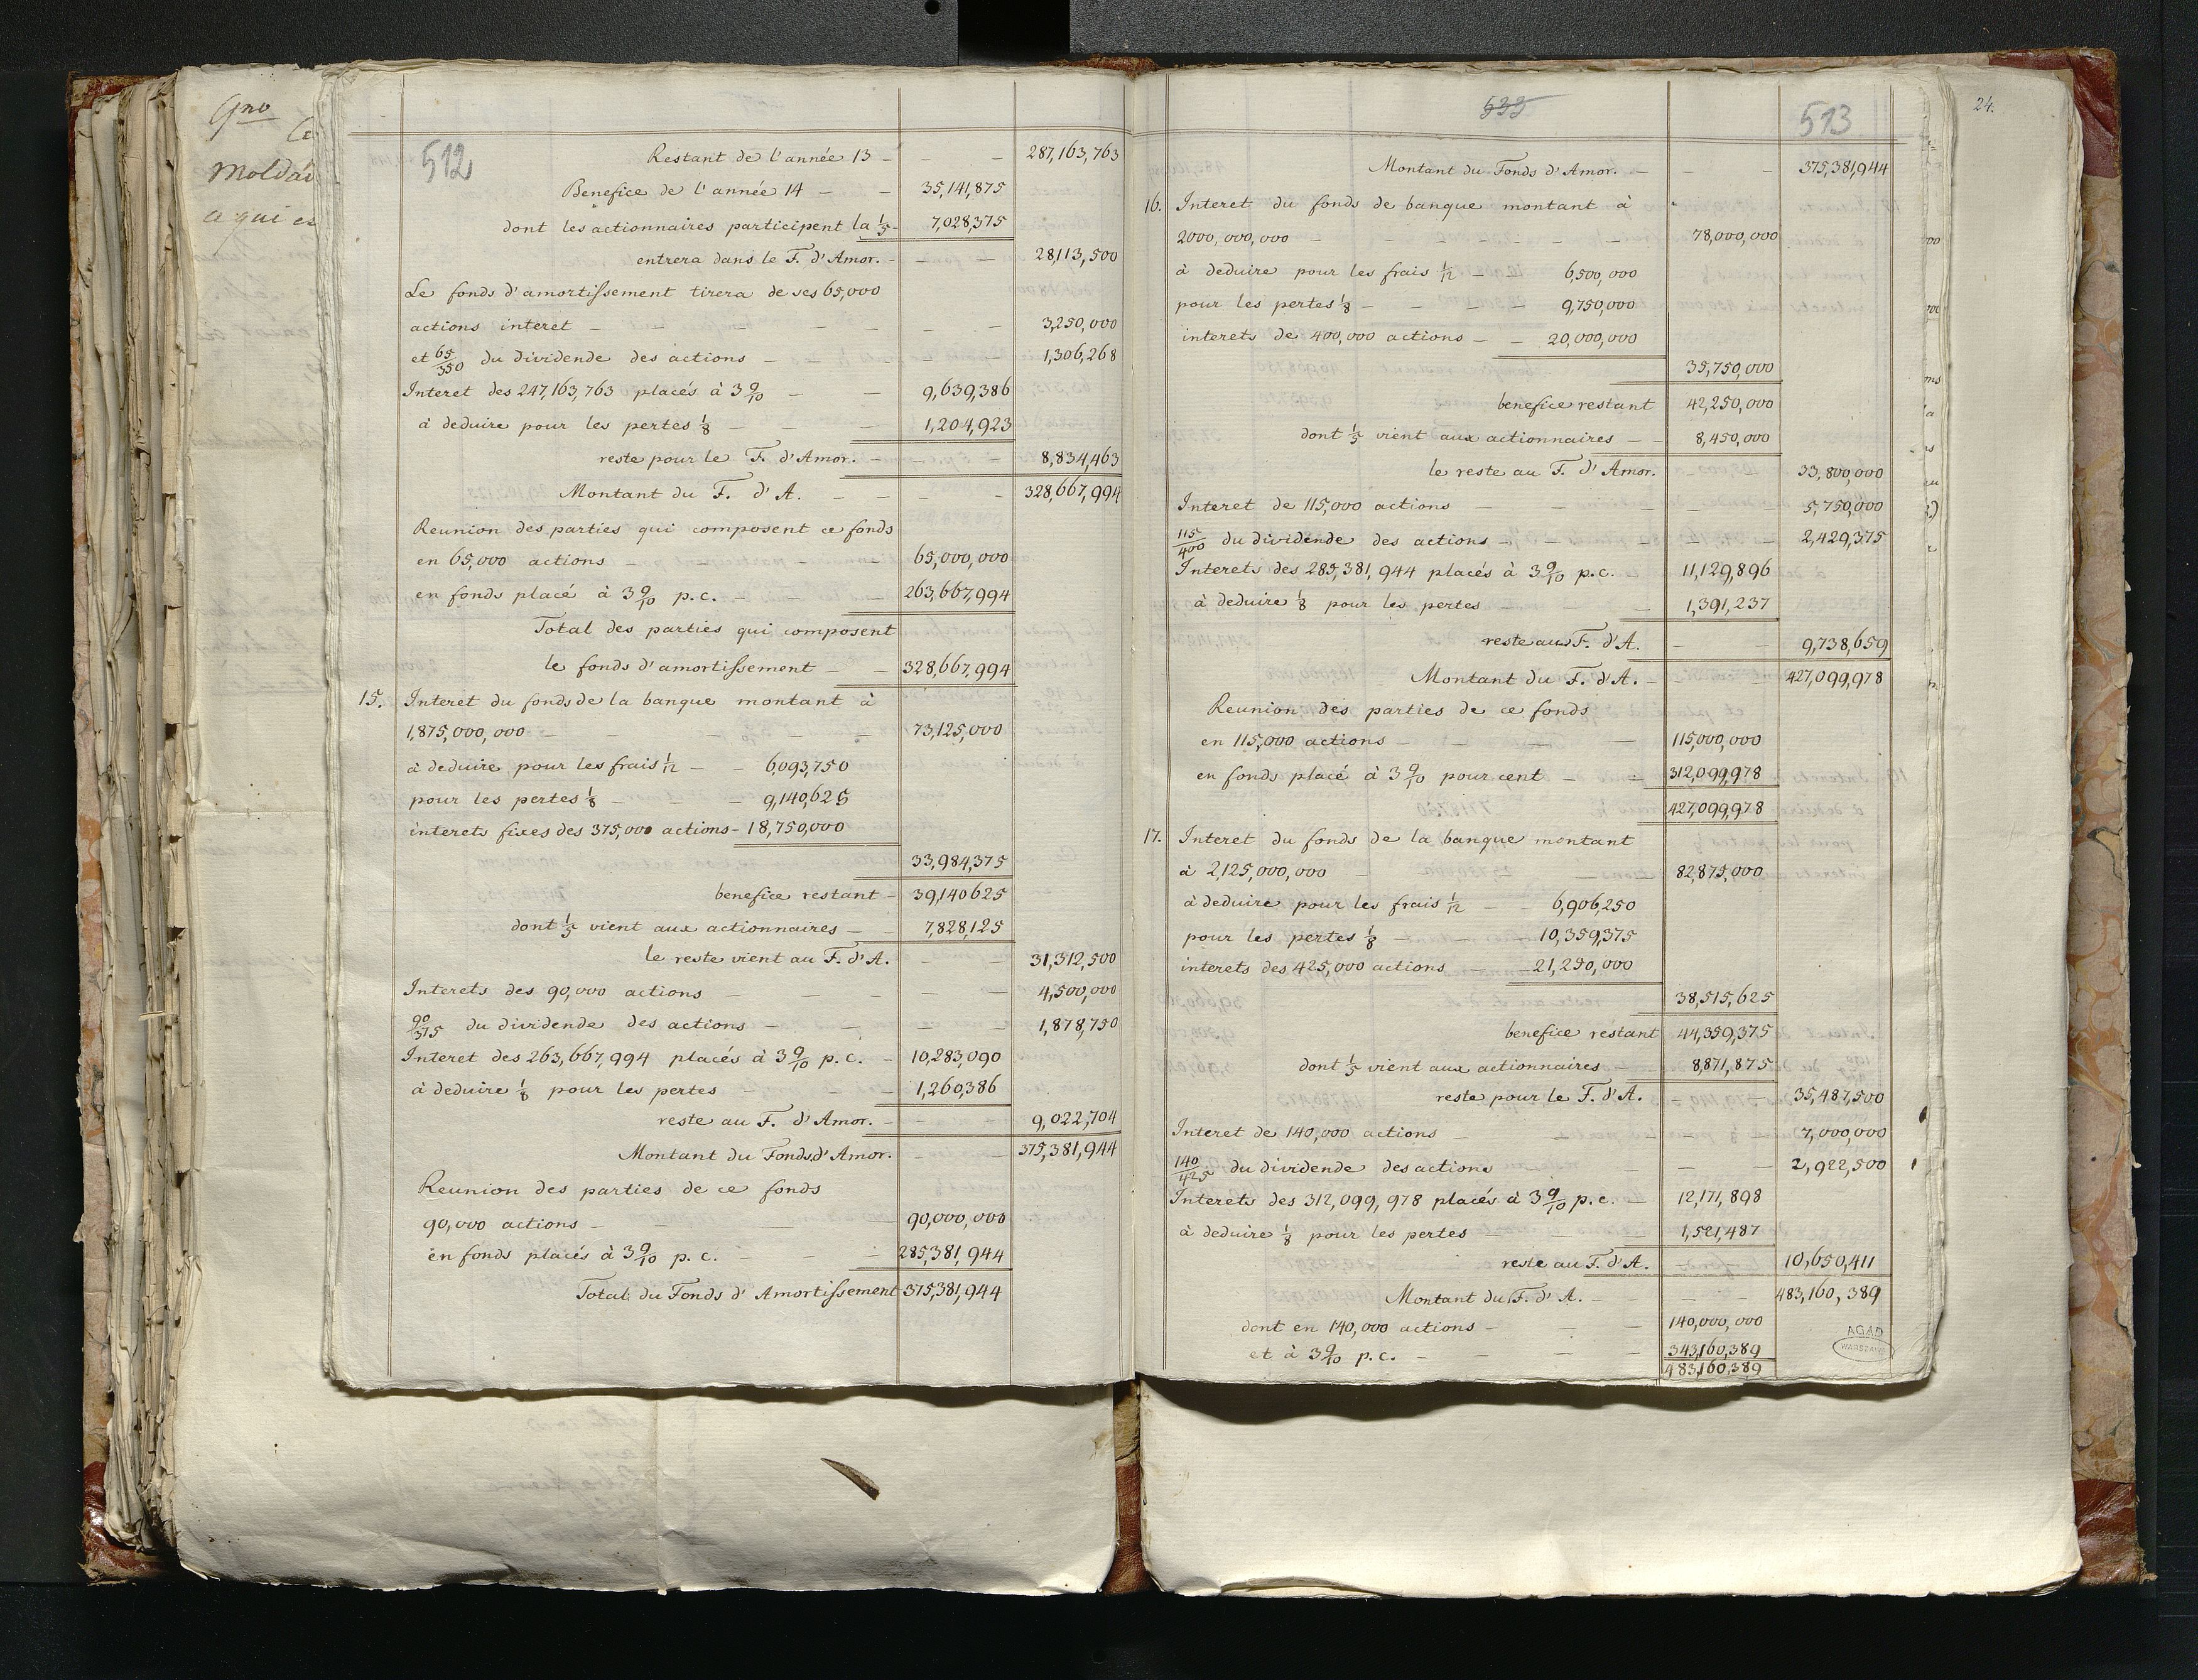 Gno
Ce
Moldav
a qui es
512
Restant de l'année 13 - - - 287,163,763
Benefice de l'année 14 - - 35,141,875
dont les actionnaires participent la 1/5 - 7,028,375
entrera dans le F. d'Amor. - - - 28,113,500
Le fonds d'amortissement tirera de ses 65,000
actions interet - - - - - - 3,250,000
et 65/350 du dividende des actions - - - - 1,306,268
Interet des 247,163,763 placés à 3 9/10 - - 9,639,386
à deduire pour les pertes 1/8 - - - 1,204,923
reste pour le F. d'Amor. - - - 8,834,463
Montant du F. d'A. - - - - 328,667,994
Reunion des parties qui composent ce fonds
en 65,000 actions - - - 65,000,000
en fonds placé à 3 9/10 p.c. - - - 263,667,994
Total des parties qui composent
le fonds d'amortissement - - 328,667,994
15. Interet du fonds de la banque montant à
1,875,000,000 - - - - - 73,125,000
à deduire pour les frais 1/12 - - 6,093,750
pour les pertes 1/8 - - - 9,140,625
interets fixes des 375,000 actions - 18,750,000
33,984,375
benefice restant - 39,140625
dont 1/5 vient aux actionnaires - - 7,828,125
le reste vient au F. d'A. - - 31,312,500
Interets des 90,000 actions - - - - - 4,500,000
90/375 du dividende des actions - - - - 1,878,750
Interet des 263,667,994 placés à 3 9/10 p.c. - 10,283,090
à deduire 1/8 pour les pertes - - - 1,260,386
reste au F. d'Amor. - - - 9,022,704
Montant du Fonds d'Amor. - - 375,381,944
Reunion des parties de ce fonds
90,000 actions - - - - 90,000,000
en fonds placés à 3 9/10 p.c. - - - 285,381,944
Total du Fonds d'Amortissement 375,381,944
535
513
24.
Montant du Fonds d'Amor. - - - 375,381,944
16. Interet du fonds de banque montant à
2000,000,000 - - - - - - 78,000,000
à deduire pour les frais 1/12 - - 6,500,000
pour les pertes 1/8 - - - - 9,750,000
interets de 400,000 actions - - 20,000,000
35,750,000
benefice restant 42,250,000
dont 1/5 vient aux actionnaires - - 8,450,000
le reste au F. d'Amor. - - 33,800,000
Interet de 115,000 actions - - - - - 5,750,000
115/400 du dividende des actions - - - - - 2,429,375
Interets des 285,381,944 placés à 3 9/10 p.c. 11,129,896
à deduire 1/8 pour les pertes - - - 1,391,237
reste au F. d'A. - - 9,738,659
Montant du F. d'A. - - 427,099,978
Reunion des parties de ce fonds
en 115,000 actions - - - 115,000,000
en fonds placé à 3 9/10 pour cent - - 312,099,978
427,099,978
17. Interet du fonds de la banque montant
à 2,125,000,000 - - - - 82,875,000
à deduire pour les frais 1/12 - - 6,906,250
pour les pertes 1/8 - - - 10,359,375
interets des 425,000 actions - - 21,250,000
38,515,625
benefice restant 44,359,375
dont 1/5 vient aux actionnaires - - 8,871,875
reste pour le F. d'A. - - 35,487,500
Interet de 140,000 actions - - - - 7,000,000
140/425 du dividende des actions - - - 2,922,500
Interets des 312,099,978 placés à 3 9/10 p.c. - 12,171,898
à deduire 1/8 pour les pertes - - - 1,521,487
reste au F. d'A. - - 10,650,411
Montant du F. d'A. - - - 483,160,389
dont en 140,000 actions - - - 140,000,000
et à 3 9/10 p.c. - - - 343,160,389
483,160,389
AGAD
WARSZAWA